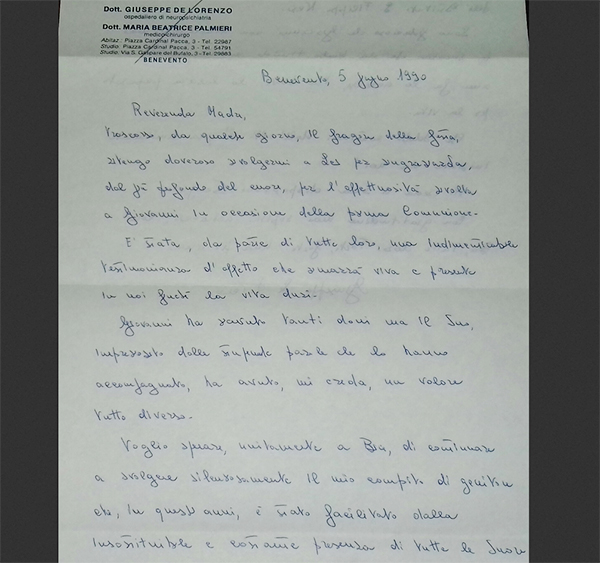 Dott. GIUSEPPE DE LORENZO
ospedaliero di neuropsichiatria
Dott. MARIA BEATRICE PALMIERI
medico chirurgo
Abitaz.: Piazza Cardinal Pacca, 3 - Tel. 22987
Studio: Piazza Cardinal Pacca, 3 - Tel. 54791
Studio: Via S. Gaspare del Bufalo, 3 - Tel. 29883
BENEVENTO
Benevento, 5 giugno 1990
Reverenda Madre,
trascorso, da qualche giorno, il fragore della festa,
ritengo doveroso rivolgermi a Lei per ringraziarla,
dal più profondo del cuore, per l'affettuosità rivolta
a Giovanni in occasione della prima Comunione.
È stata, da parte di tutte loro, una indimenticabile
testimonianza d'affetto che rimarrà viva e presente
in noi finché la vita duri.
Giovanni ha ricevuto tanti doni ma il Suo,
impreziosito dalle stupende parole che lo hanno
accompagnato, ha avuto, mi creda, un valore
tutto diverso.
Voglio sperare, unitamente a Bea, di continuare
a svolgere silenziosamente il mio compito di genitore
che, in questi anni, è stato facilitato dalla
insostituibile e costante presenza di tutte le Suore